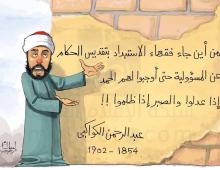 من أين جاء فقهاء الاستبداد بتقديس الحكام
عن المسؤولية حتى أوجبوا لهم الحمد
إذا عدلوا والصبر إذا ظلموا !!
عبدالرحمن الكواكبي
1902 - 1854